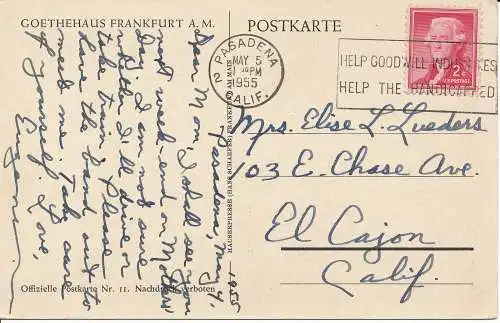 GOETHEHAUS FRANKFURT A. M.
POSTKARTE
Pasadena, May 4, 1955
Dear Mom, I shall see you
next week-end on Mothers'
Day. I am not sure
whether I'll drive or
take train. Please
have the hand out to
meet me. Take care
of yourself. Love,
Eugene
Offizielle Postkarte Nr. 11. Nachdruck verboten
HAUSERPRESSE (HANS SCHAEFER) FRANKFURT AM MAIN
PASADENA
2
MAY 5
PM
1955
CALIF.
HELP GOODWILL INDUSTRIES
HELP THE HANDICAPPED
2¢
U.S. POSTAGE
Mrs. Elise L. Lueders
103 E. Chase Ave.
El Cajon
Calif.